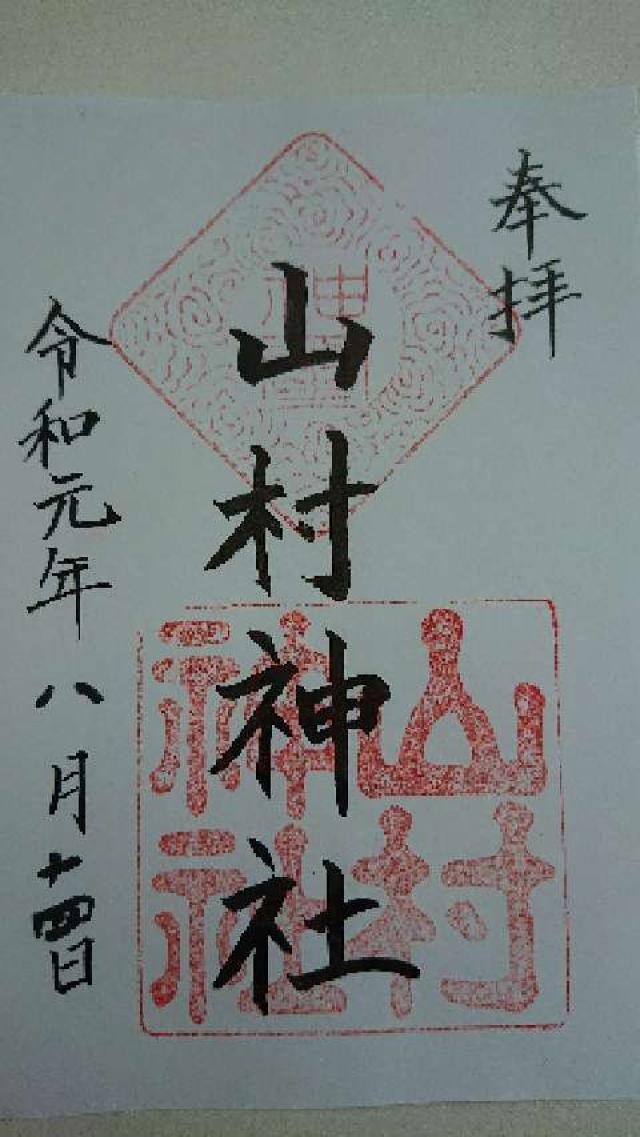 奉拝
山村神社
山村
神社
令和元年八月十四日